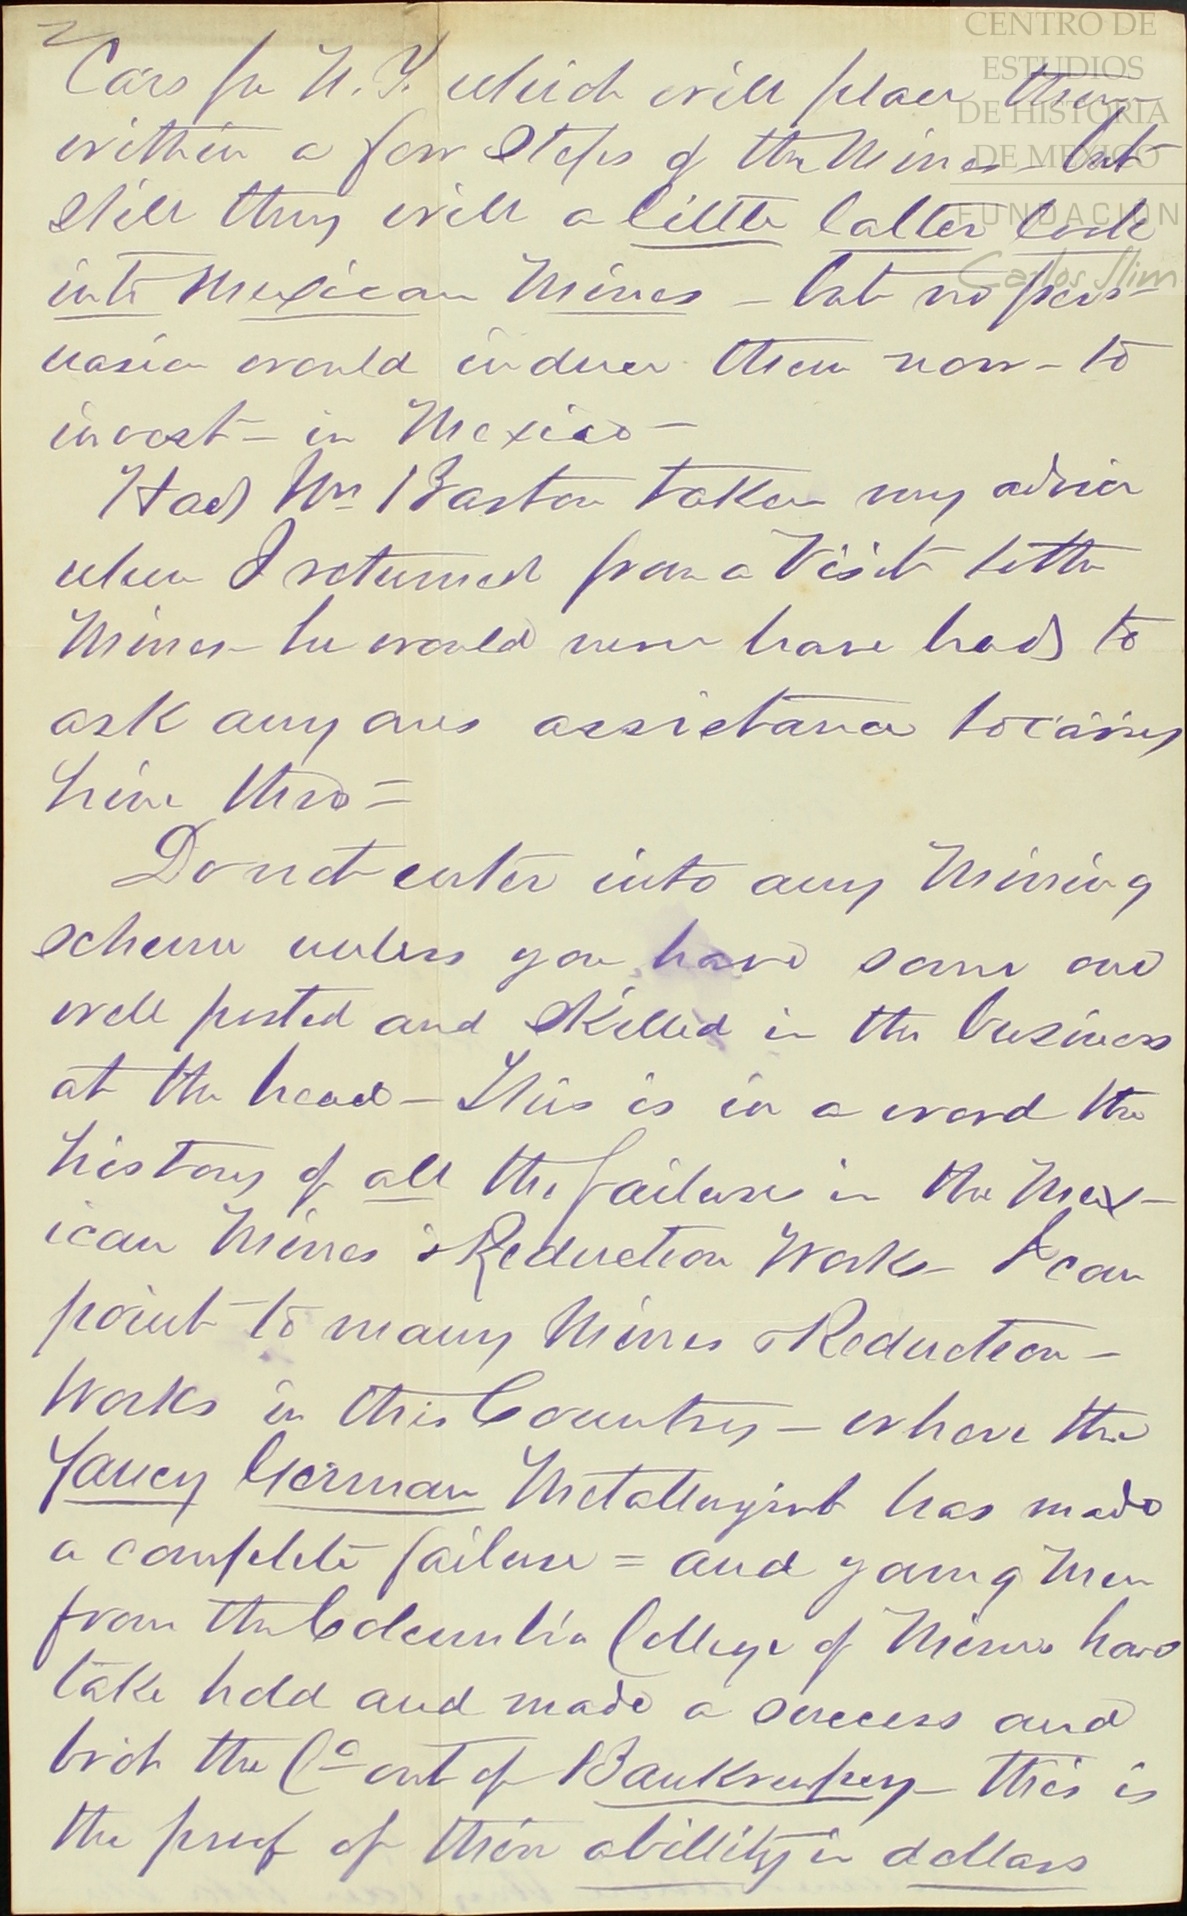 2
Cars for N. Y. which will place them
within a few Steps of the Mines - but
still they will a little latter look
into Mexican Mines - but no pers-
uasion would induce them now - to
invest - in Mexico -
Had Wm Barton taken my advice
when I returned from a Visit to the
Mines - he would never have had to
ask any ones assistance to carry
him thro =
Do not enter into any Mining
scheme unless you have some one
well posted and Skilled in the business
at the head - This is in a word the
history of all the failures in the Mex-
ican Mines & Reduction Works - I can
point - to many Mines & Reduction -
Works in this Country - where the
fancy German Metallurgist has made
a complete failure = and young Men
from the Columbia College of Mines have
take hold and made a success and
brot the Co out of Bankrupcy - this is
the proof of their abillity in dollars
CENTRO DE
ESTUDIOS
DE HISTORIA
DE MÉXICO
FUNDACIÓN
Carlos Slim